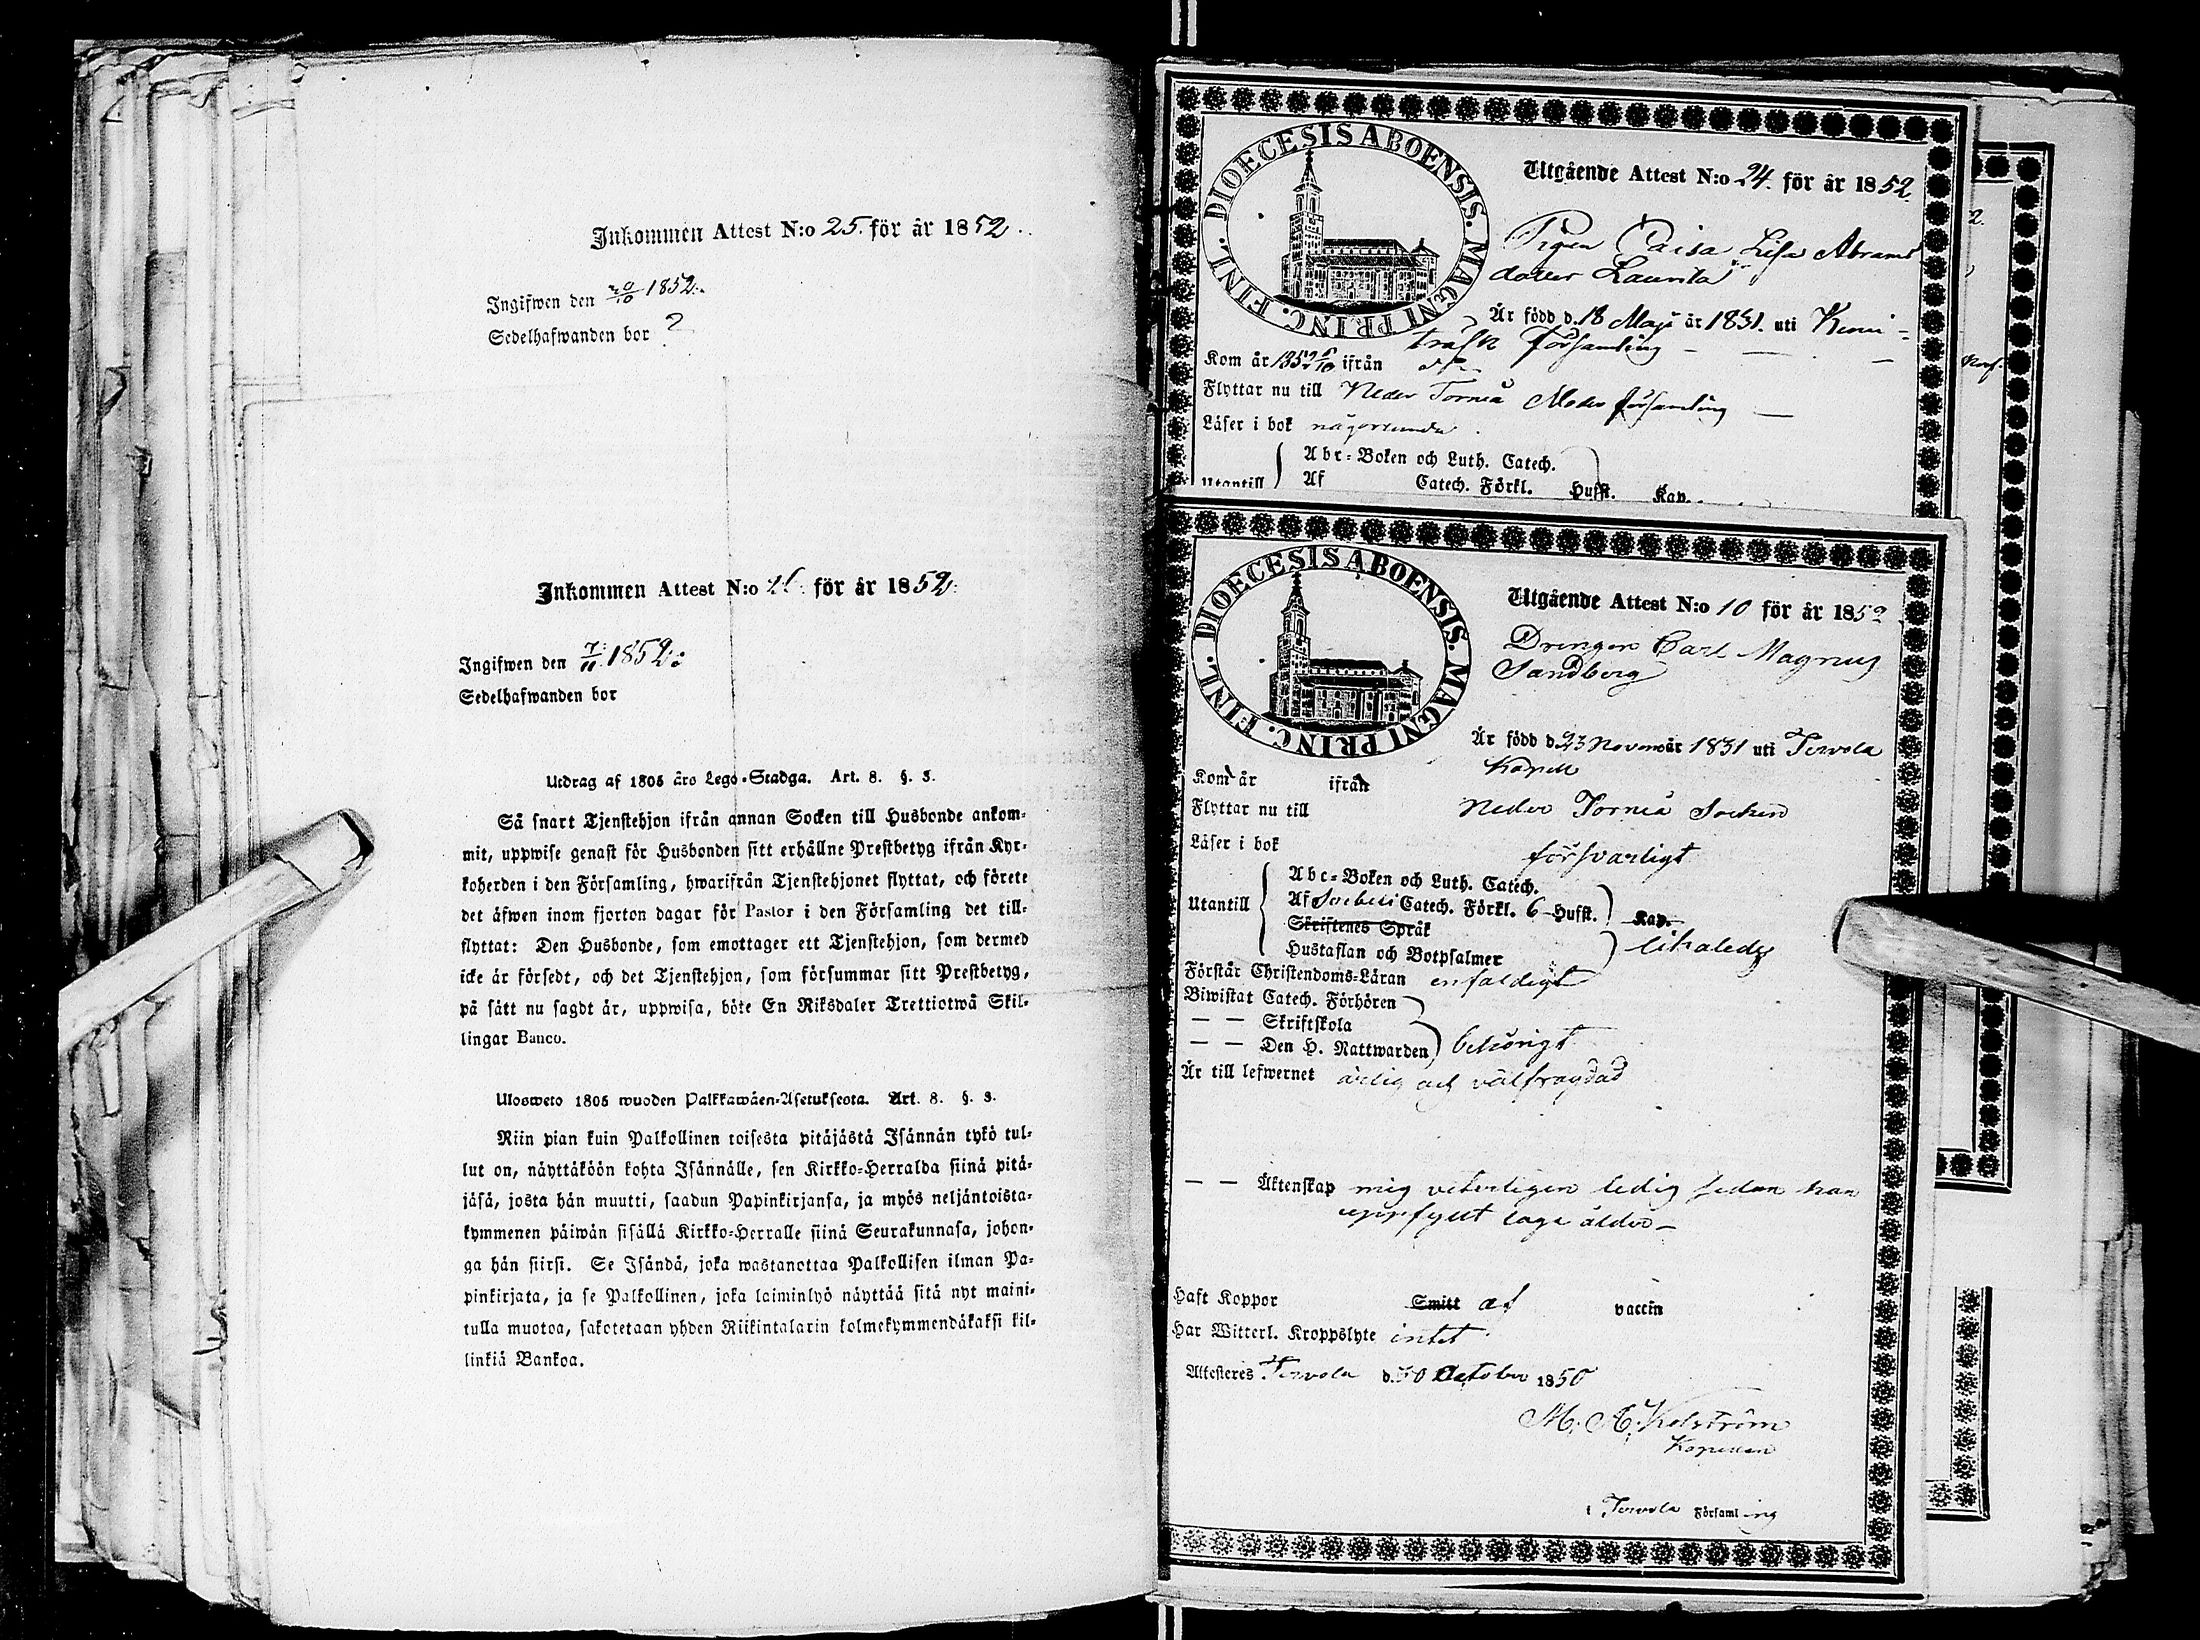 Inkommen Attest N:o 25. för år 1852.
Ingifwen den 20/10 1852.
Sedelhafwanden bor ?
Inkommen Attest N:o för år 1852.
Ingifwen den 7/11 1852.
Sedelhafwanden bor
Utdrag af 1805 års Lego-Stadga. Art. 8. §. 3.
Så snart Tjenstehjon ifrån annan Socken till Husbonde ankom-
mit, uppwise genast för Husbonden sitt erhållne Prestbetyg ifrån Kyr-
koherden i den Församling, hwarifrån Tjenstehjonet flyttat, och förete
det äfwen inom fjorton dagar för Pastor i den Församling det till-
flyttat: Den Husbonde, som emottager ett Tjenstehjon, som dermed
icke är försedt, och det Tjenstehjon, som försummar sitt Prestbetyg,
på sätt nu sagdt är, uppwisa, böte En Riksdaler Trettiotwå Skil-
lingar Banco.
Ulosweto 1805 wuoden Palkkawäen-Asetuksesta. Art. 8. §. 3.
Niin pian kuin Palkollinen toisesta pitäjästä Isännän tykö tul-
lut on, näyttäköön kohta Isännälle, sen Kirkko-Herralda siinä pitä-
jäsä, josta hän muutti, saadun Papinkirjansa, ja myös neljäntoista-
kymmenen päiwän sisällä Kirkko-Herralle siinä Seurakunnasa, johon-
ga hän siirsi. Se Isändä, joka wastanottaa Palkollisen ilman Pa-
pinkirjata, ja se Palkollinen, joka laiminlyö näyttää sitä nyt maini-
tulla muotoa, sakotetaan yhden Riikintalarin kolmekymmendäkaksi kil-
linkiä Bankoa.
DIOECESIS ABOENSIS. MAGNI PRINC. FINL.
Utgående Attest N:o 24. för år 1852.
Pigan Caisa Lisa Abrams
dotter Laurila
Är född d. 18 Maji år 1831. uti Kemi-
träsk församling
Kom år 1852 ifrån
Flyttar nu till Neder Torneå Moder församling
Läser i bok någorlunda
Utantill Abc-Boken och Luth. Catech.
Af Catech. Förkl. Hufst. Kap.
DIOECESIS ABOENSIS. MAGNI PRINC. FINL.
Utgående Attest N:o 10 för år 1852
Drengen Carl Magnus
Sandberg
Är född d. 23 November 1831 uti Tervola
Kapell
Kom år ifrån
Flyttar nu till Neder Torneå Socken
Läser i bok försvarligt
Utantill Abc-Boken och Luth. Catech.
Af Svebelii Catech. Förkl. 6 Hufst. Kap.
Skriftenes Språk
Hustaflan och Botpsalmer likaledes
Förstår Christendoms-Läran enfaldigt
Biwistat Catech. Förhören
— — Skriftskola
— — Den H. Nattwarden behörigt
Är till lefwernet ärlig och välfrägdad
— — Äktenskap mig veterligen ledig sedan han
uppfyllt laga ålder
Haft Koppor Smitt af vaccin
Har Witterl. Kroppslyte intet
Attesteres Tervola d. 30 October 1850
M. A. Kelström
Kapellan
i Tervola Församling